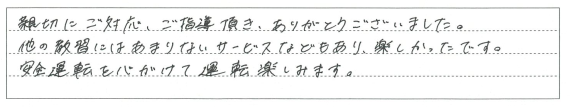 親切にご対応、ご指導頂き、ありがとうございました。
他の教習にはあまりないサービスなどもあり、楽しかったです。
安全運転を心がけて運転楽しみます。